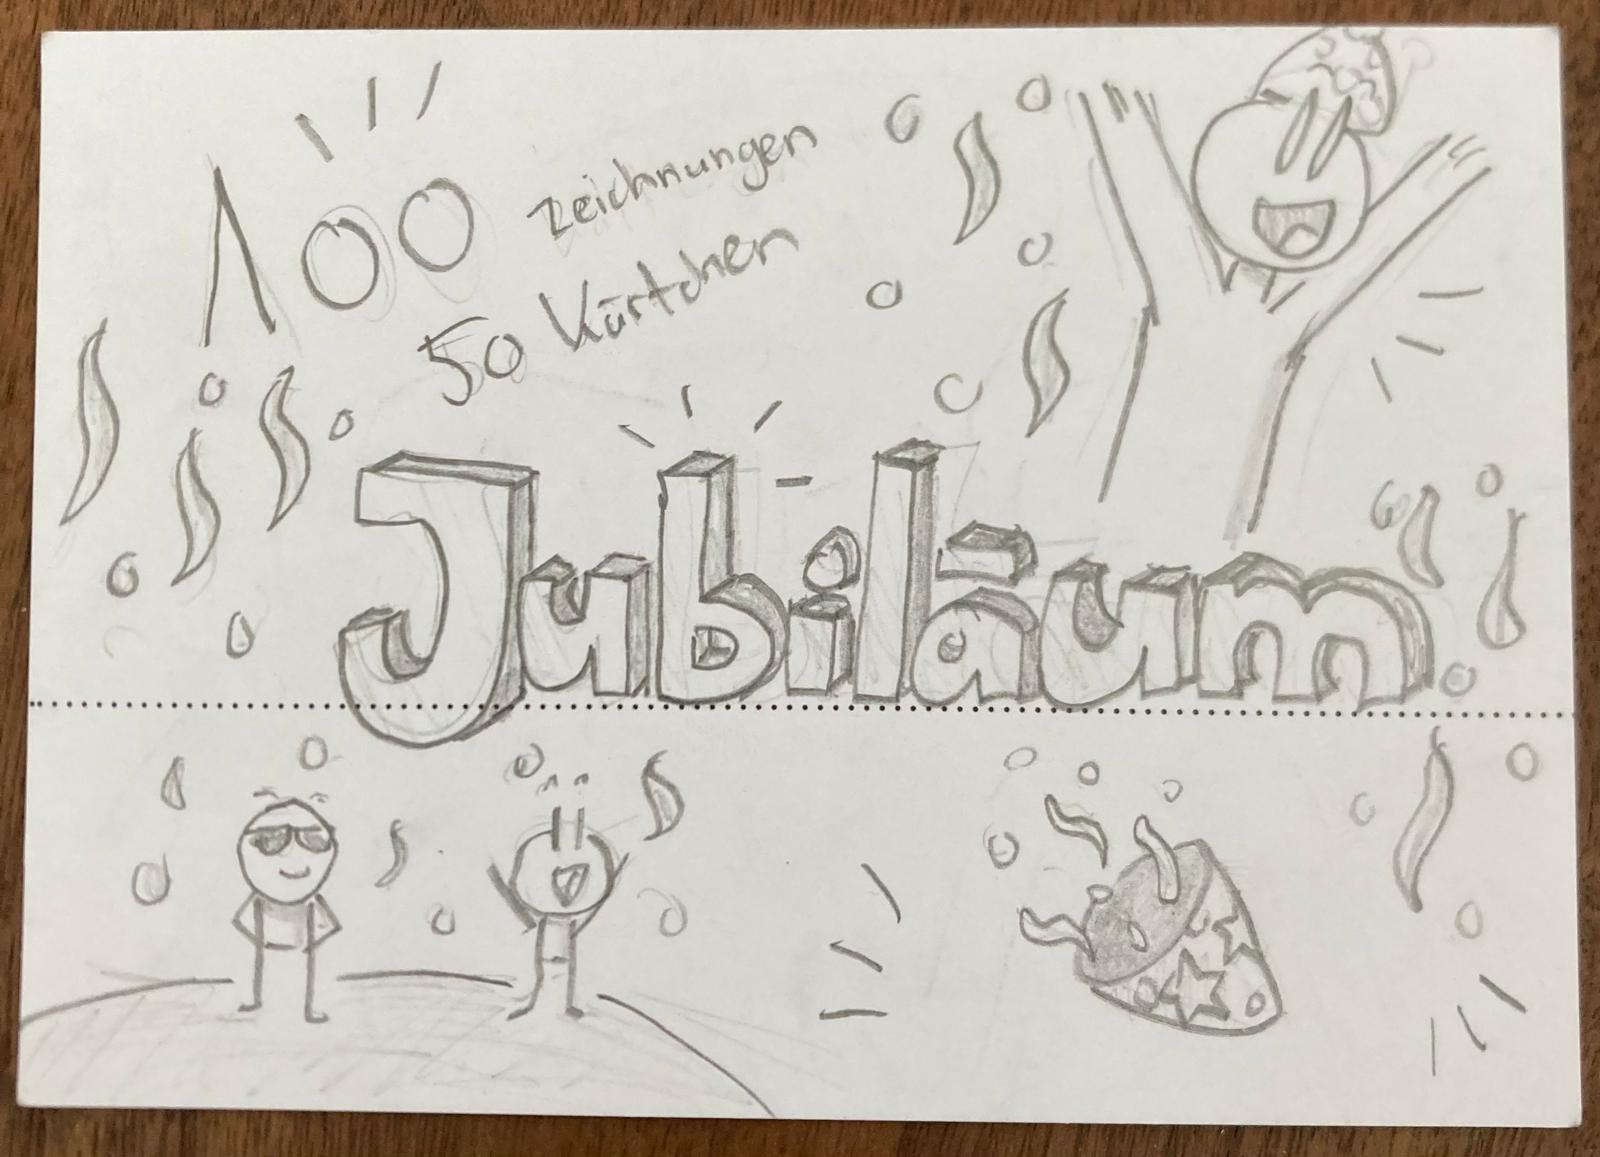 100 zeichnungen
50 Kärtchen
Jubiläum